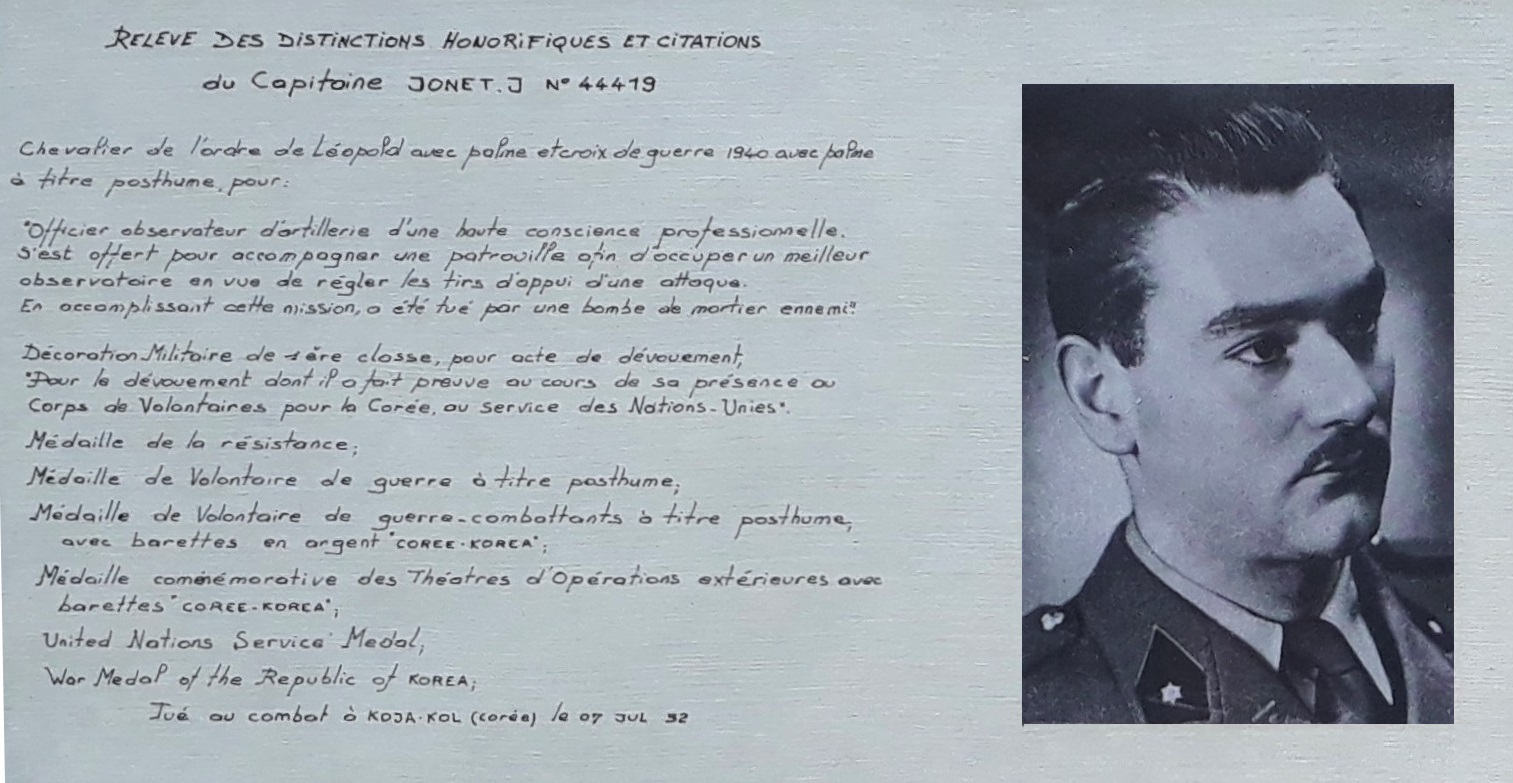 RELEVE DES DISTINCTIONS HONORIFIQUES ET CITATIONS
du Capitaine JONET.J N° 44419
Chevalier de l'ordre de Léopold avec palme et croix de guerre 1940 avec palme
à titre posthume, pour:
"Officier observateur d'artillerie d'une haute conscience professionnelle.
S'est offert pour accompagner une patrouille afin d'occuper un meilleur
observatoire en vue de régler les tirs d'appui d'une attaque.
En accomplissant cette mission, a été tué par une bombe de mortier ennemi".
Décoration Militaire de 1ère classe, pour acte de dévouement,
"Pour le dévouement dont il a fait preuve au cours de sa présence au
Corps de Volontaires pour la Corée, au service des Nations-Unies".
Médaille de la résistance;
Médaille de Volontaire de guerre à titre posthume;
Médaille de Volontaire de guerre-combattants à titre posthume,
avec barettes en argent "COREE-KOREA";
Médaille commémorative des Théatres d'Opérations extérieures avec
barettes "COREE-KOREA";
United Nations Service Medal;
War Medal of the Republic of KOREA;
Tué au combat à KOJA-KOL (Corée) le 07 JUL 52